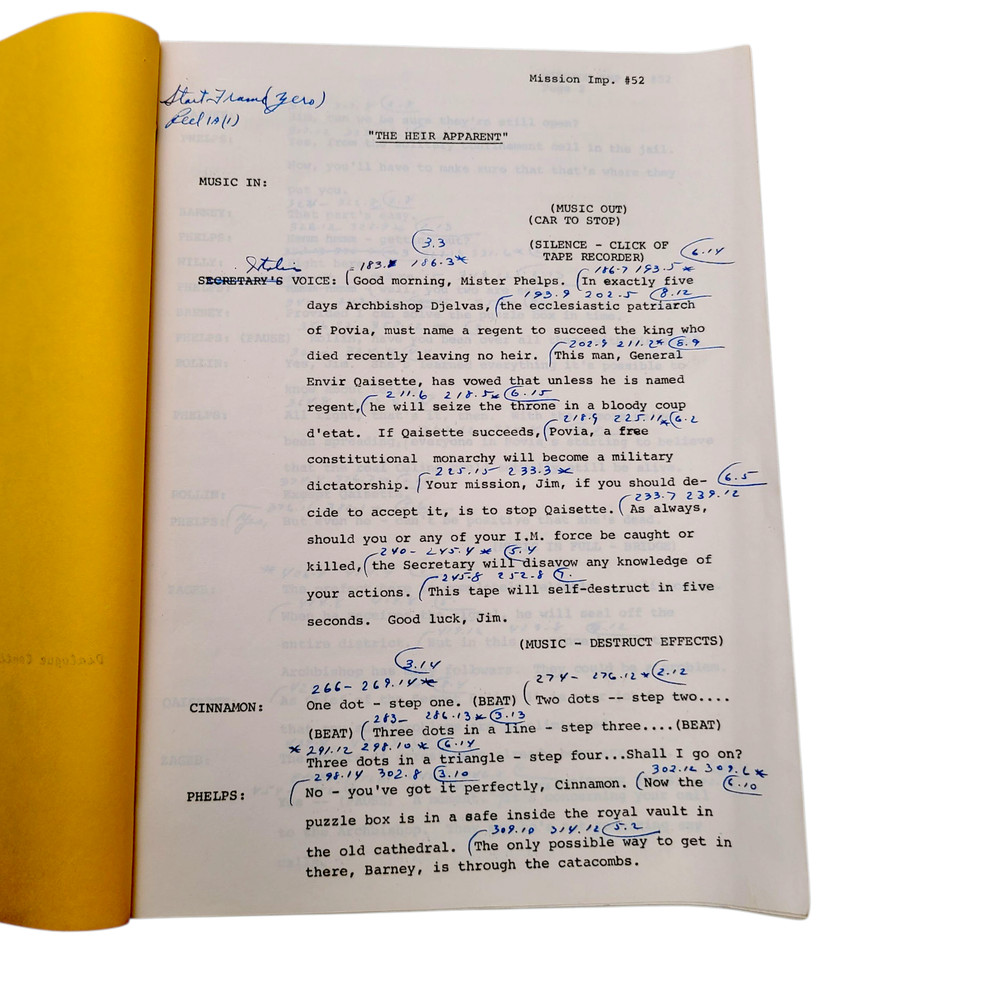 Mission Imp. #52
Start-Frame (zero)
Reel 1A(1)
"THE HEIR APPARENT"
MUSIC IN:
(MUSIC OUT)
(CAR TO STOP)
(SILENCE - CLICK OF
TAPE RECORDER)
3.3
6.14
183.* 186.3*
186.7 193.5*
SECRETARY'S VOICE: Good morning, Mister Phelps. (In exactly five
193.9 202.5 8.12
days Archbishop Djelvas, (the ecclesiastic patriarch
of Povia, must name a regent to succeed the king who
202.9 211.2* 8.9
died recently leaving no heir. (This man, General
Envir Qaisette, has vowed that unless he is named
211.6 218.5* 6.15
regent, (he will seize the throne in a bloody coup
218.9 225.11* 6.2
d'etat. If Qaisette succeeds, (Povia, a free
constitutional monarchy will become a military
225.15 233.3*
dictatorship. (Your mission, Jim, if you should de-
6.5
233.7 239.12
cide to accept it, is to stop Qaisette. (As always,
should you or any of your I.M. force be caught or
240- 245.4* 5.4
killed, (the Secretary will disavow any knowledge of
245.8 252.8 7.
your actions. (This tape will self-destruct in five
seconds. Good luck, Jim.
(MUSIC - DESTRUCT EFFECTS)
3.14
266- 269.14*
274- 276.12* 2.12
CINNAMON: One dot - step one. (BEAT) (Two dots -- step two....
283- 286.13* 3.13
(BEAT) (Three dots in a line - step three....(BEAT)
* 291.12 298.10* 6.14
Three dots in a triangle - step four...Shall I go on?
298.14 302.8 3.10
302.12 309.6*
PHELPS: (No - you've got it perfectly, Cinnamon. (Now the
6.10
puzzle box is in a safe inside the royal vault in
309.10 314.12 5.2
the old cathedral. (The only possible way to get in
there, Barney, is through the catacombs.